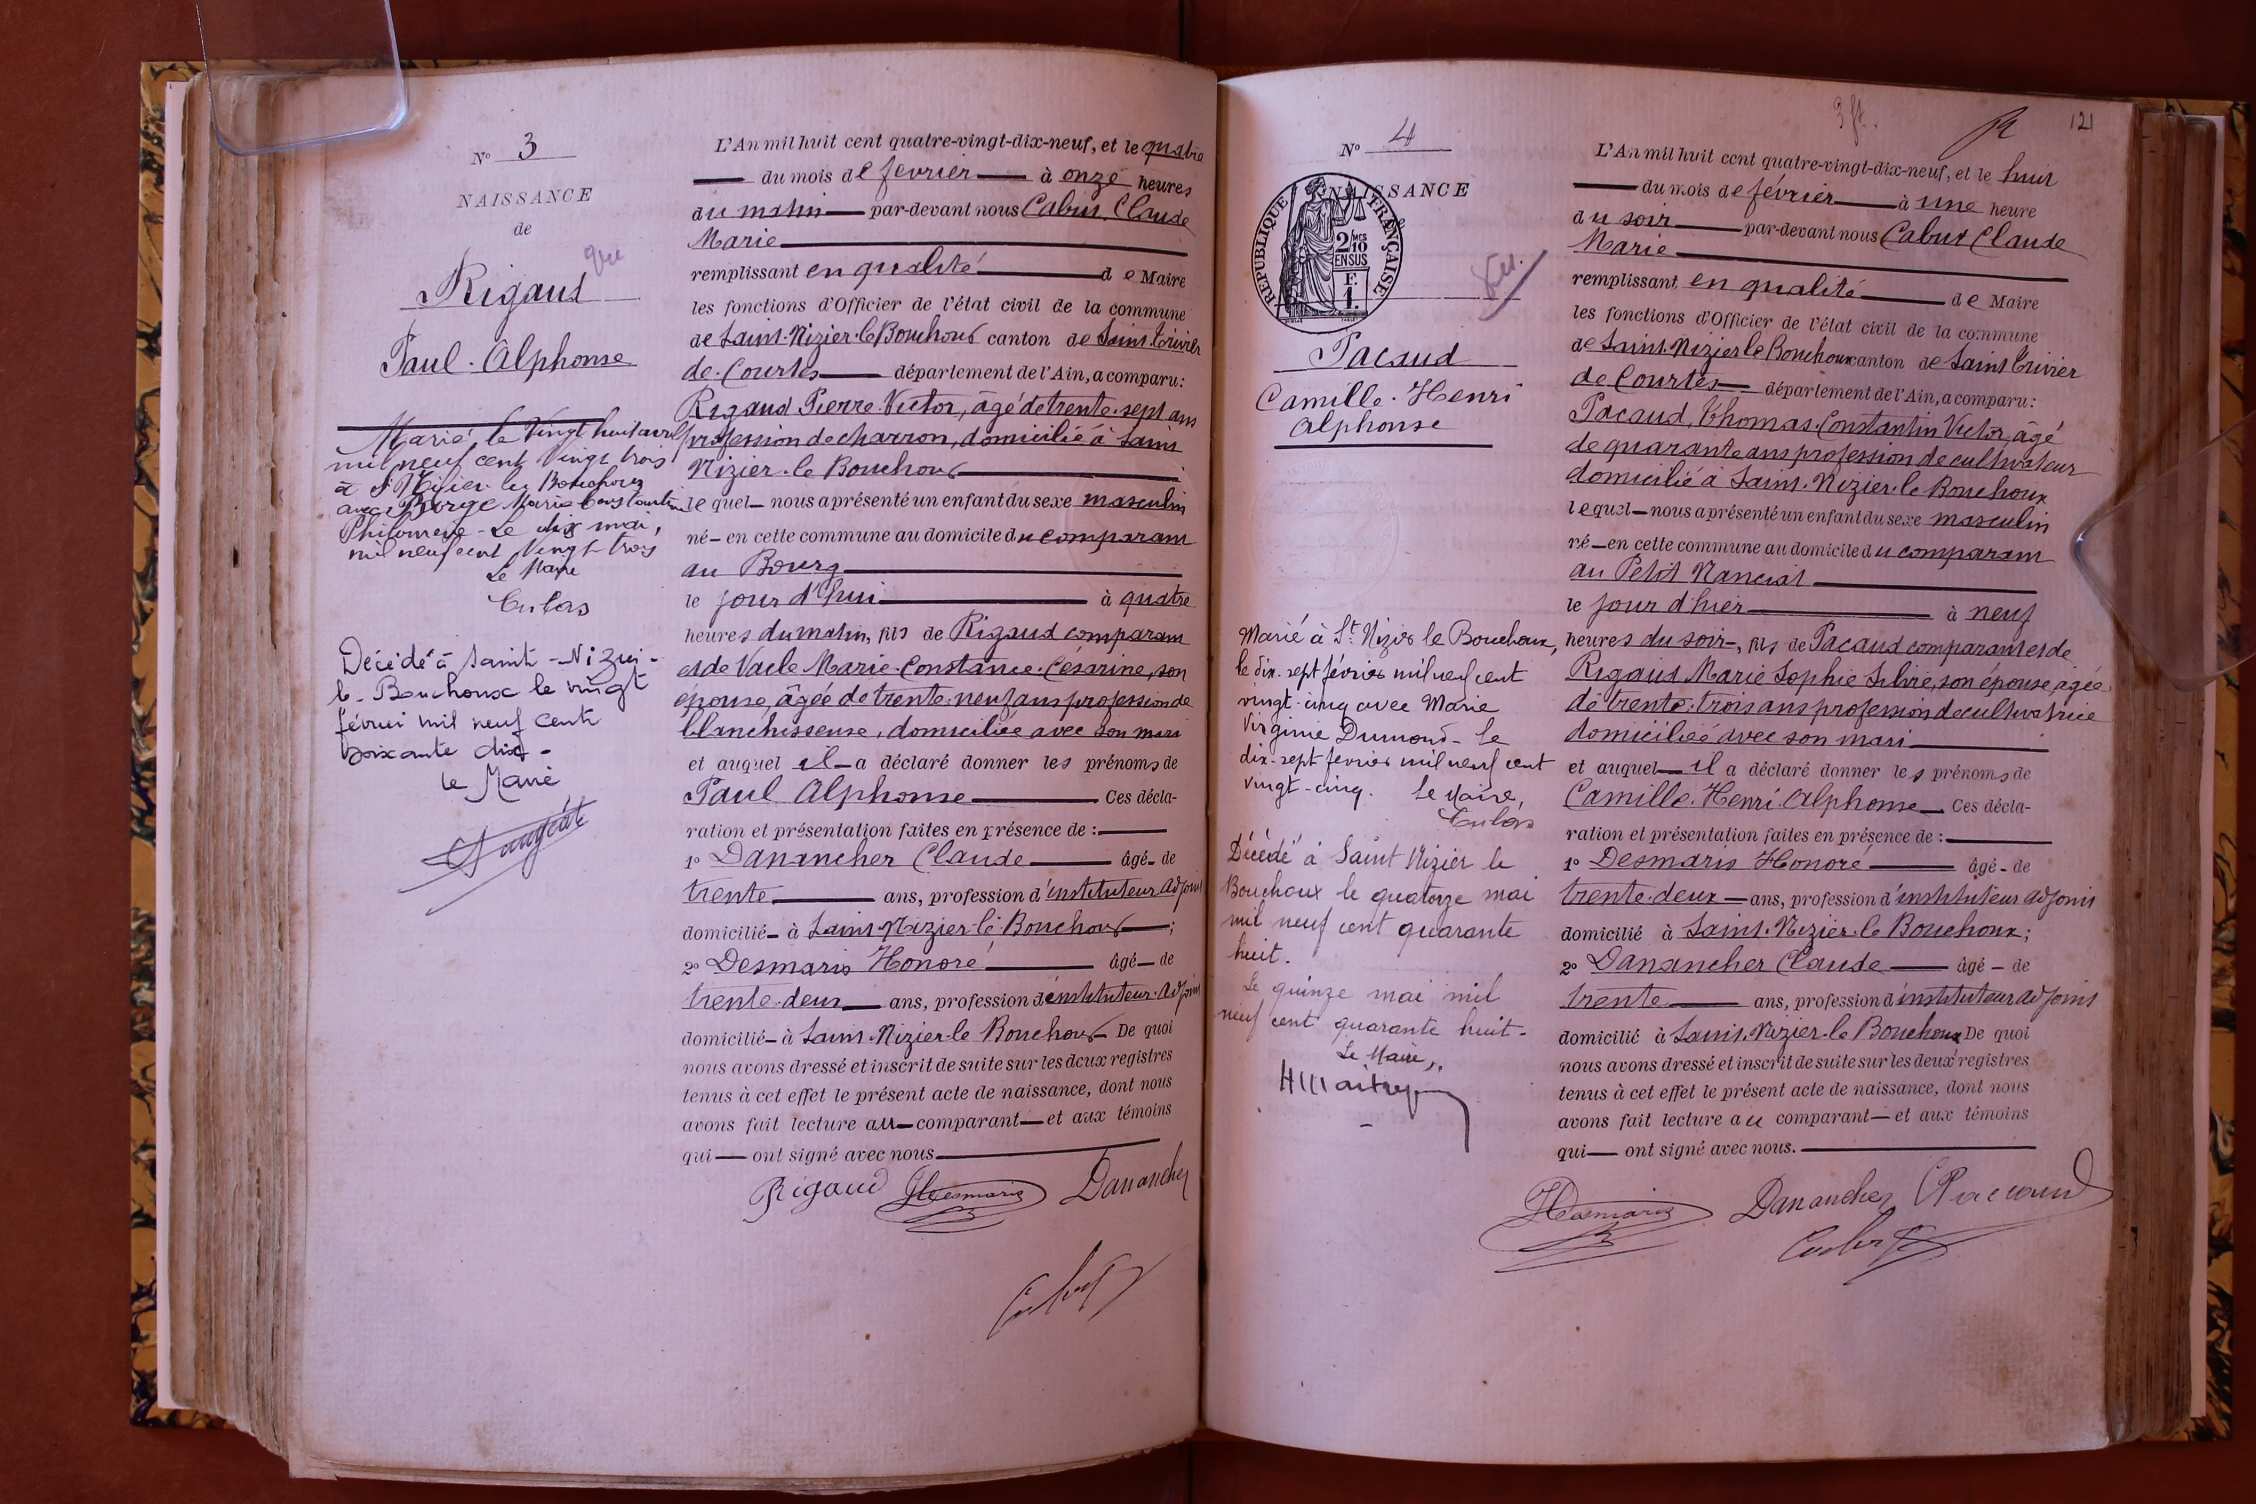 N° 3
NAISSANCE
de
Rigaud
Paul. Alphonse
Marié, le vingt huit avril
mil neuf cent vingt trois
à St Nizier le Bouchoux
avec Borge Marie Constantine
Philomène - Le dix mai,
mil neuf cent vingt-trois
Le Maire
Décédé à Saint-Nizier-
le-Bouchoux le vingt
février mil neuf cent
soixante dix -
le Maire
L'An mil huit cent quatre-vingt-dix-neuf, et le quatre
du mois de février à onze heures
du matin par-devant nous Cabut Claude
Marie
remplissant en qualité de Maire
les fonctions d'Officier de l'état civil de la commune
de Saint-Nizier-le-Bouchoux canton de Saint Trivier
de Courtes département de l'Ain, a comparu:
Rigaud Pierre Victor, âgé de trente-sept ans
profession de charron, domicilié à Saint
Nizier-le Bouchoux
lequel nous a présenté un enfant du sexe masculin
né en cette commune au domicile du comparant
au Bourg
le jour d'hui à quatre
heures du matin, fils de Rigaud comparant
et de Vacle Marie-Constance-Césarine, son
épouse, âgée de trente-neuf ans profession de
blanchisseuse, domiciliée avec son mari
et auquel il a déclaré donner les prénoms de
Paul Alphonse Ces décla-
ration et présentation faites en présence de :
1° Danancher Claude âgé de
trente ans, profession d'instituteur adjoint
domicilié à Saint-Nizier-le-Bouchoux ;
2° Desmaris Honoré âgé de
trente-deux ans, profession d'instituteur-adjoint
domicilié à Saint-Nizier-le Bouchoux De quoi
nous avons dressé et inscrit de suite sur les deux registres
tenus à cet effet le présent acte de naissance, dont nous
avons fait lecture au comparant et aux témoins
qui ont signé avec nous
Rigaud HDesmaris Danancher
Cabut
121
N° 4
NAISSANCE
REPUBLIQUE FRANÇAISE
2/10
EN SUS
F.
1.
Pacaud
Camille-Henri
Alphonse
Marié à St Nizier le Bouchoux,
le dix-sept février mil neuf cent
vingt-cinq avec Marie
Virginie Dumond - Le
dix-sept février mil neuf cent
vingt-cinq. Le Maire,
Décédé à Saint Nizier le
Bouchoux le quatorze mai
mil neuf cent quarante
huit.
Le quinze mai mil
neuf cent quarante huit -
Le Maire,
L'An mil huit cent quatre-vingt-dix-neuf, et le huit
du mois de février à une heure
du soir par-devant nous Cabut Claude
Marie
remplissant en qualité de Maire
les fonctions d'Officier de l'état civil de la commune
de Saint-Nizier le Bouchoux canton de Saint Trivier
de Courtes département de l'Ain, a comparu:
Pacaud, Thomas-Constantin Victor, âgé
de quarante ans profession de cultivateur
domicilié à Saint-Nizier-le Bouchoux
lequel nous a présenté un enfant du sexe masculin
né en cette commune au domicile du comparant
au Petit Nancial
le jour d'hier à neuf
heures du soir, fils de Pacaud comparant et de
Rigaud Marie Sophie Silvie, son épouse, âgée
de trente-trois ans profession de cultivatrice
domiciliée avec son mari
et auquel il a déclaré donner les prénoms de
Camille-Henri-Alphonse Ces décla-
ration et présentation faites en présence de :
1° Desmaris Honoré âgé de
trente-deux ans, profession d'instituteur adjoint
domicilié à Saint-Nizier-le Bouchoux ;
2° Danancher Claude âgé de
trente ans, profession d'instituteur adjoint
domicilié à Saint-Nizier-le Bouchoux De quoi
nous avons dressé et inscrit de suite sur les deux registres
tenus à cet effet le présent acte de naissance, dont nous
avons fait lecture au comparant et aux témoins
qui ont signé avec nous.
HDesmaris Danancher Paccaud
Cabut